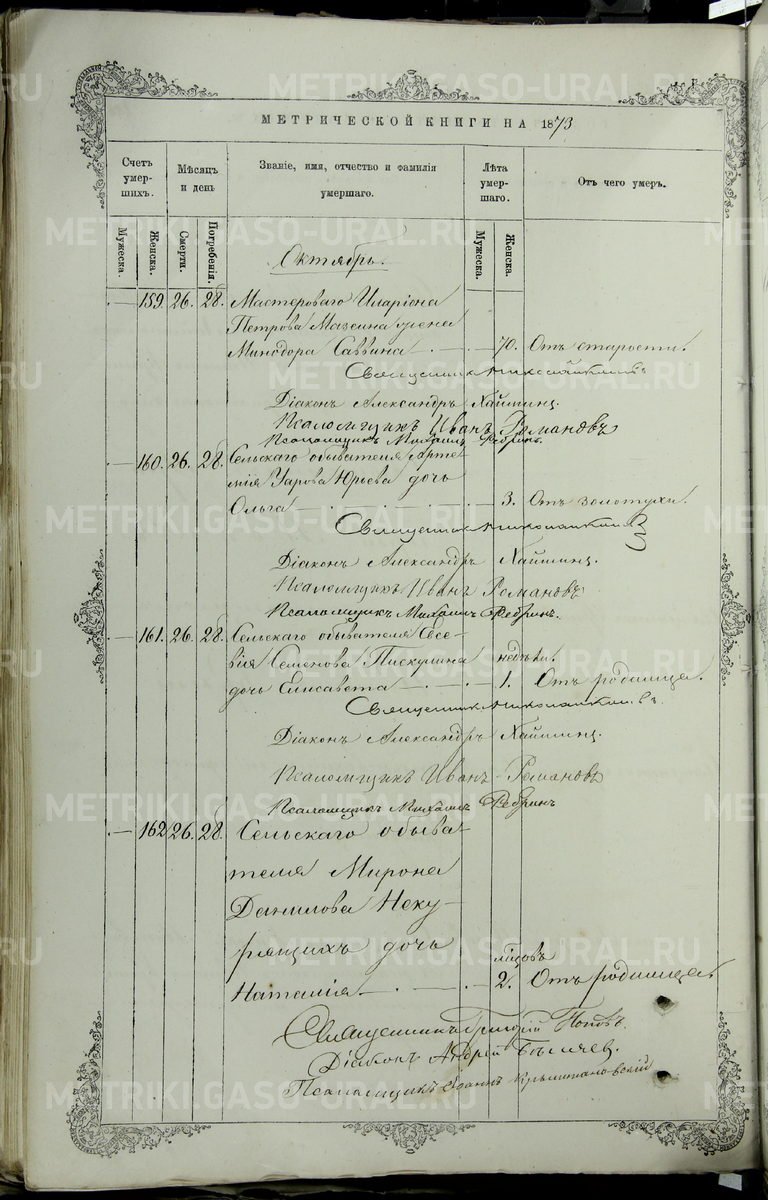 METRIKI.GASO-URAL.RU
МЕТРИЧЕСКОЙ КНИГИ НА 1873
Счетъ умер-шихъ.
Мѣсяцъ и день
Званіе, имя, отчество и фамилія умершаго.
Лѣта умер-шаго.
Отъ чего умеръ.
Мужеска.
Женска.
Смерти.
Погребенія.
Мужеска.
Женска.
Октябрь.
— 159. 26. 28. Мастероваго Иларіона
Петрова Мазеина жена
Минодора Саввина — 70. Отъ старости.
Священникъ
Діаконъ Александръ
Псаломщикъ Иванъ Романовъ
Псаломщикъ Михаилъ Ребринъ.
— 160. 26. 28. Сельскаго обывателя Арте-
мія Уарова Юрьева дочь
Ольга — 3. Отъ золотухи.
Священникъ
Діаконъ Александръ
Псаломщикъ Иванъ Романовъ
Псаломщикъ Михаилъ Ребринъ.
— 161. 26. 28. Сельскаго обывателя Евсе-
вія Семенова Пискунова недѣли.
дочь Елисавета — 1. Отъ родимца.
Священникъ
Діаконъ Александръ
Псаломщикъ Иванъ Романовъ
Псаломщикъ Михаилъ Ребринъ
— 162 26. 28. Сельскаго обыва-
теля Мирона
Данилова Неку-
рящихъ дочь
мѣсяцовъ
Наталія — 2. Отъ родимца.
Священникъ Григорій Поповъ.
Діаконъ Андрей
Псаломщикъ Іоаннъ